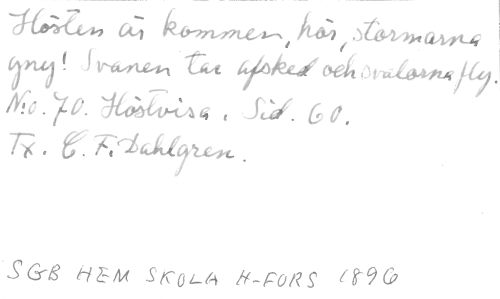 Hösten är kommen, hör, stormarna
gny! Svanen tar afsked och svalorna fly.
N:o. 70. Höstvisa. Sid. 60.
Tx. C. F. Dahlgren.
SGB HEM SKOLA H-FORS 1896